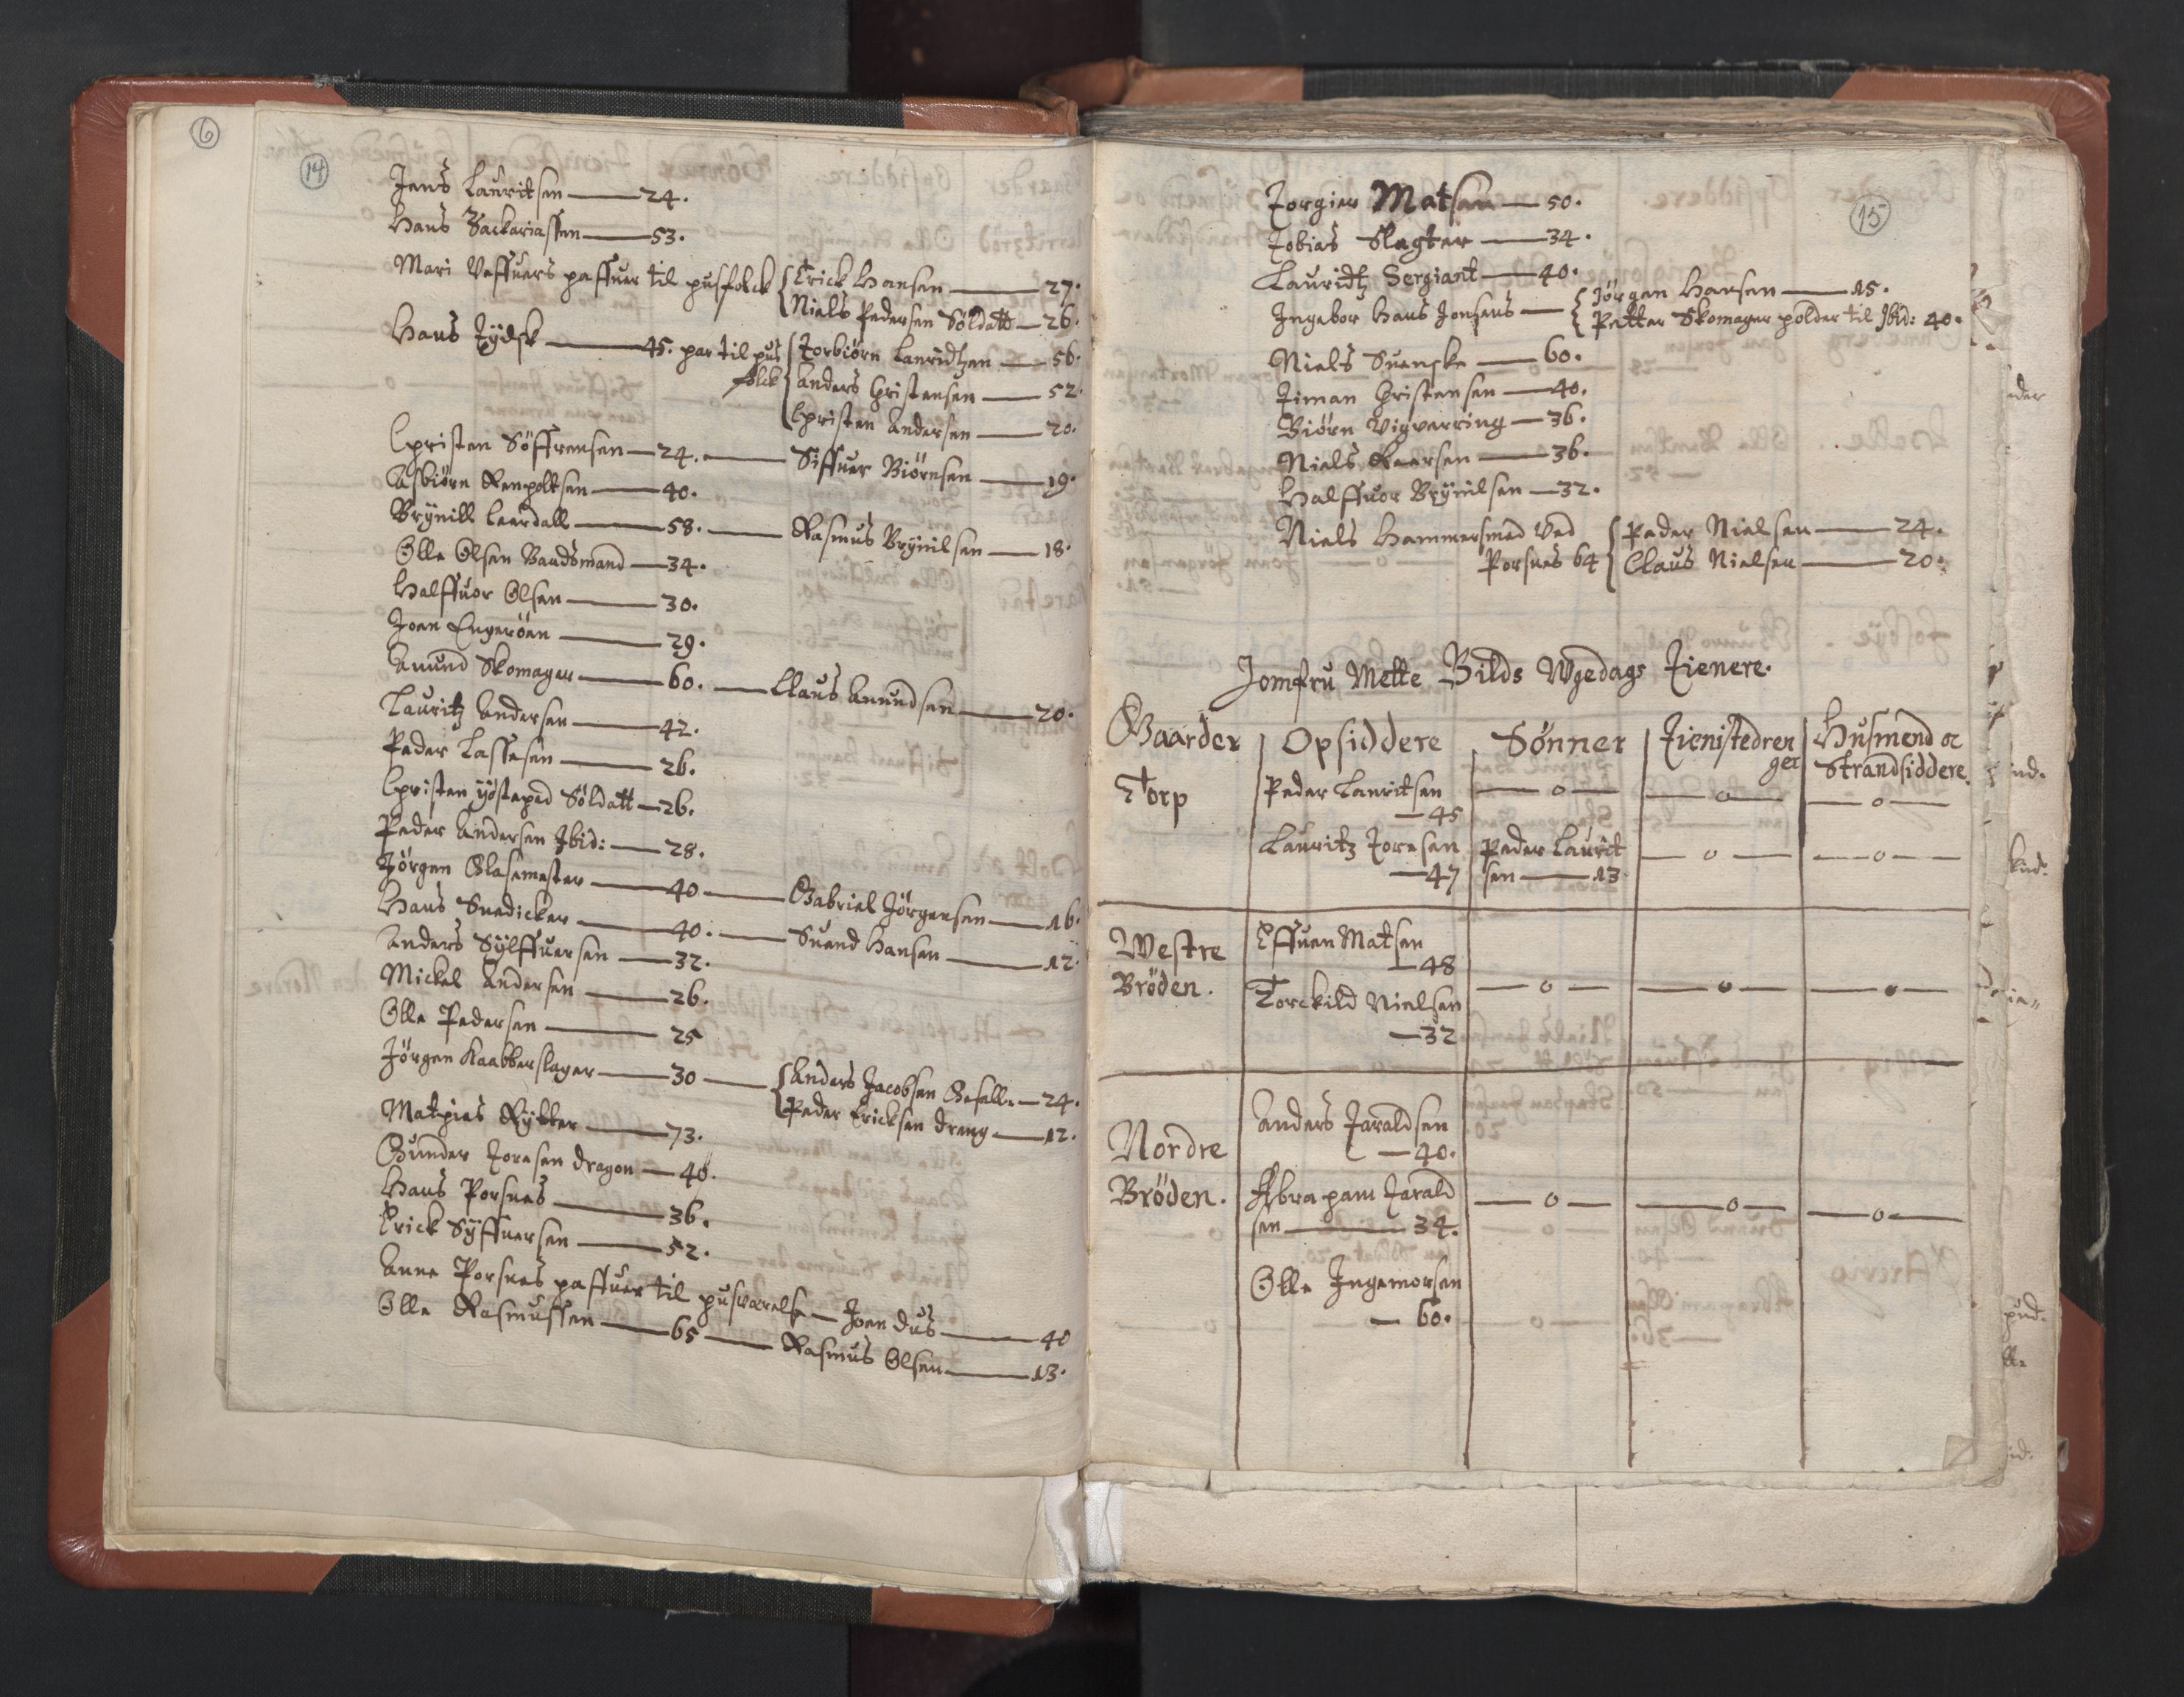 6
14
Jens Lauritsen — 24.
Hans Zackariassen — 53.
Mari Veffuers haffuer til husfolck { Erick Hansen — 27.
Niels Pedersen Soldatt — 26.
Hans Jÿdsk — 45. har til hus { Torbiörn Lauridtzen — 56.
folck { Anders Christensen — 52.
Christen Andersen — 20.
Christen Söffrensen — 24. — Siffuer Biörnsen — 19.
Asbiörn Renholtsen — 40.
Brÿnill Leerdall — 58. — Rasmus Brÿnilsen — 18.
Olle Olsen Baadsmand — 34.
Halffuor Olsen — 30.
Joen Engeröen — 29.
Anund Skomager — 60. — Claus Anundsen — 20.
Lauritz Andersen — 42.
Peder Lassesen — 26.
Christen Söldatt — 26.
Peder Andersen Ibid: — 28.
Jörgen Glasemester — 40 — Gabriel Jörgensen — 16.
Hans Snedicker — 40. — Suend Hansen — 12.
Anders Sÿlffuersen — 32.
Mickel Andersen — 26.
Olle Pedersen — 25
Jörgen Kaabberslager — 30 — { Anders Jacobsen Gesell — 24.
Peder Ericksen dreng — 12.
Mathies Rÿtter — 73.
Gunder Toresen dragon — 40.
Hans Porsnes — 36.
Erick Sÿffuersen — 52.
Anne Porsnes haffuer til husværelse — Joen dus — 40
Olle Rasmussen — 65 — Rasmus Olsen — 13.
15
Torgier Matsen — 50.
Tobias Slagter — 34.
Lauridtz Sergiant — 40.
Ingebor Hans Jonsens — { Jörgen Hansen — 15.
Petter Skomager holder til Ibid: 40.
Niels Suenske — 60.
Timan Christensen — 40.
Biörn Vigherring — 36.
Niels Reersen — 36.
Halffuor Brÿnilsen — 32.
Niels Hammersmed Ved { Peder Nielsen — 24.
Porsnes 64 { Claus Nielsen — 20.
Jomfru Mette Bilds Wgedags Tienere.
Gaarder Opsiddere Sønner Tienistedren Husmend oc
ger Strandsiddere.
Torp Peder Lauritsen — o — — o — — o —
— 45
Lauritz Toresen Peder Laurit — o — — o —
— 47 sen — 13
Westre Effuen Matsen
— 48
Bröden. Torckild Nielsen — o — — o — — o —
— 32
Anders Taraldsen
Nordre — 40.
Bröden. Abraham Tarald — o — — o — — o —
sen — 34.
Olle Ingemorsen
— 60.